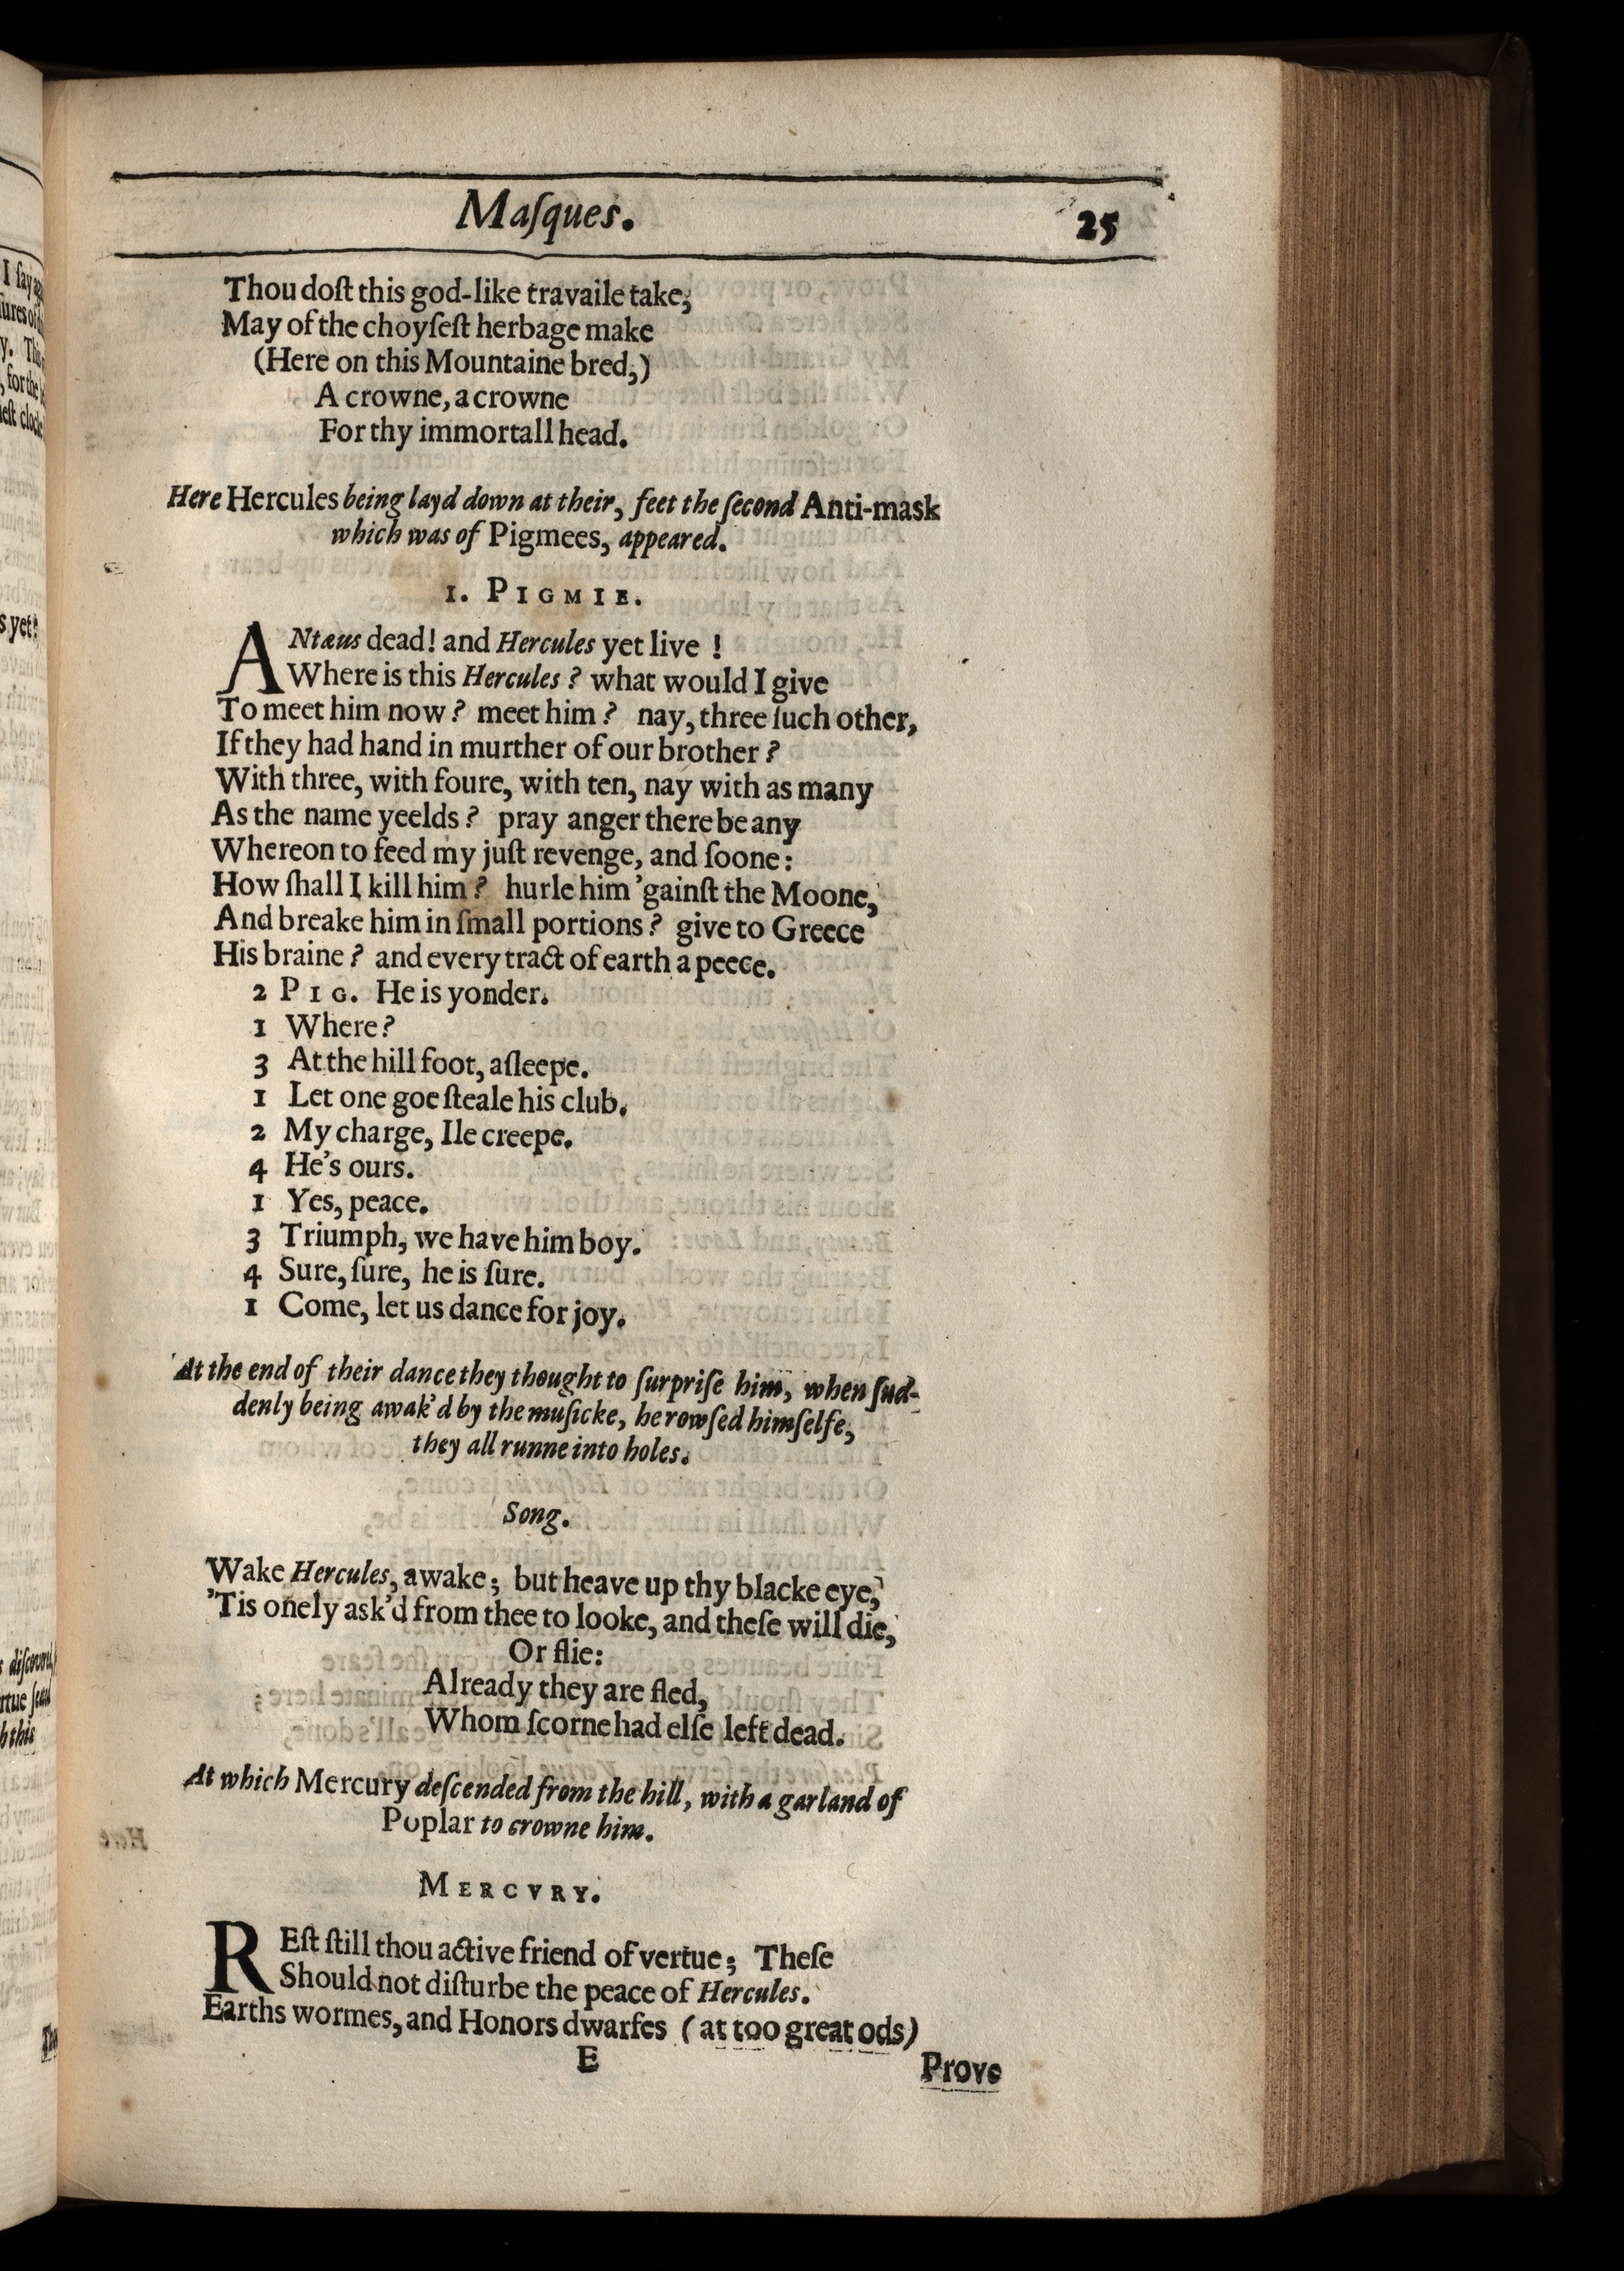 Maſques. 25
Thou doſt this god-like travaile take;
May of the choyſeſt herbage make
(Here on this Mountaine bred,)
A crowne, a crowne
For thy immortall head.
Here Hercules being layd down at their, feet the ſecond Anti-mask
which was of Pigmees, appeared.
1. PIGMIE.
ANtæus dead! and Hercules yet live !
Where is this Hercules? what would I give
To meet him now? meet him? nay, three ſuch other,
If they had hand in murther of our brother?
With three, with foure, with ten, nay with as many
As the name yeelds? pray anger there be any
Whereon to feed my juſt revenge, and ſoone:
How ſhall I kill him? hurle him 'gainſt the Moone,
And breake him in ſmall portions? give to Greece
His braine? and every tract of earth a peece.
2 PIG. He is yonder.
1 Where?
3 At the hill foot, aſleepe.
1 Let one goe ſteale his club.
2 My charge, Ile creepe.
4 He's ours.
1 Yes, peace.
3 Triumph, we have him boy.
4 Sure, ſure, he is ſure.
1 Come, let us dance for joy.
At the end of their dance they thought to ſurpriſe him, when ſud-
denly being awak'd by the muſicke, he rowſed himſelfe,
they all runne into holes.
Song.
Wake Hercules, awake; but heave up thy blacke eye,
'Tis onely ask'd from thee to looke, and theſe will die,
Or flie:
Already they are fled,
Whom ſcorne had elſe left dead.
At which Mercury deſcended from the hill, with a garland of
Poplar to crowne him.
MERCVRY.
REſt ſtill thou active friend of vertue; Theſe
Should not diſturbe the peace of Hercules.
Earths wormes, and Honors dwarfes (at too great ods)
E
Prove